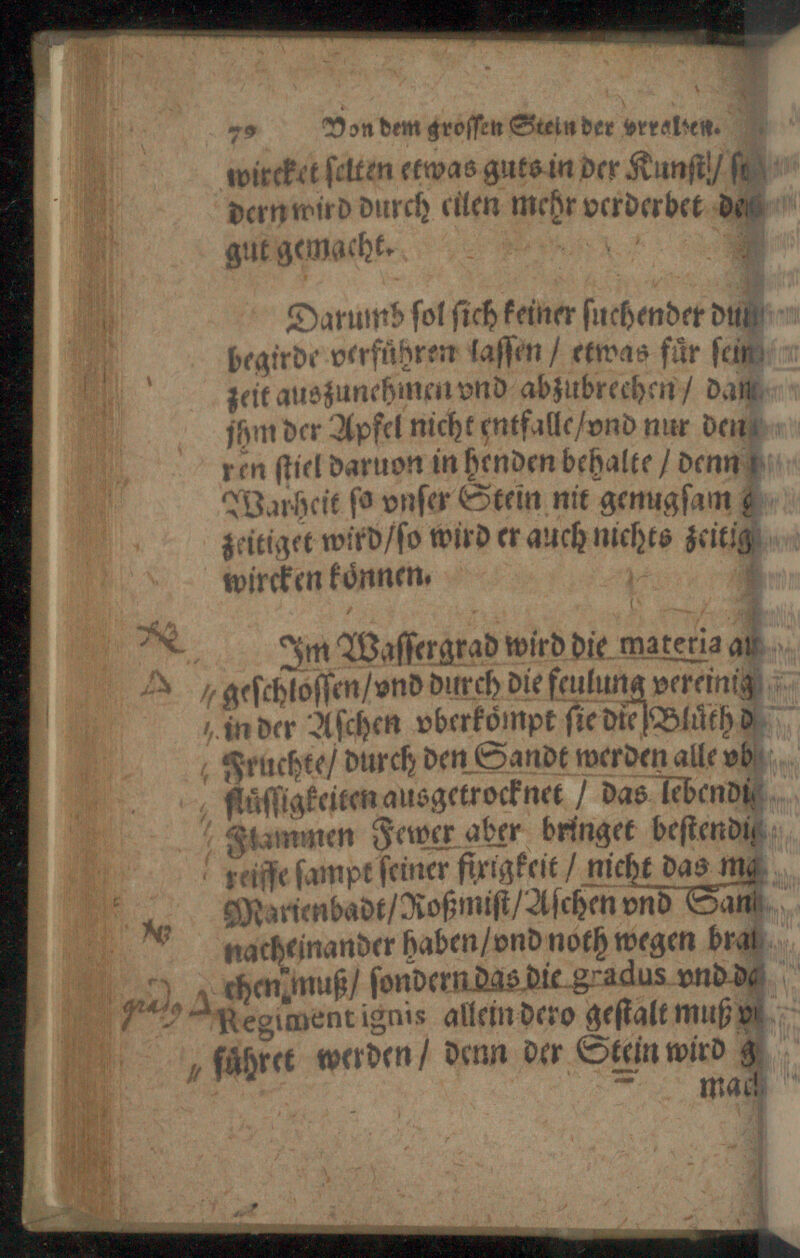 70 Von dem groſſen Stein der vrealten.
wircket ſelten etwas guts in der Kunſt /
dern wird durch eilen mehr verderbet
gut gemacht.
Darumb ſol ſich keiner ſuchender
begirde verfuͤhren laſſen / etwas fuͤr
zeit auszunehmen vnd abzubrechen /
jhm der Apfel nicht entfalle / vnd nur
ren ſtiel daruon in henden behalte / denn
Warheit ſo vnſer Stein nit genugſam
zeitiget wird / ſo wird er auch nichts
wircken koͤnnen.
Im Waſſergrad wird die materia
geſchloſſen / vnd durch die feulung
in der Aſchen vberkoͤmpt ſie die Bluͤth
Fruchte / durch den Sandt werden alle
fluͤſſigkeiten ausgetrocknet / das
Flammen Fewer aber bringet
reiffe ſampt ſeiner fixigkeit / nicht das
Marienbadt / Roßmiſt / Aſchen vnd
nacheinander haben / vnd noth wegen
chen muß / ſondern das die gradus vnd
Regiment ignis allein dero geſtalt muß
fuͤhret werden / denn der Stein wird